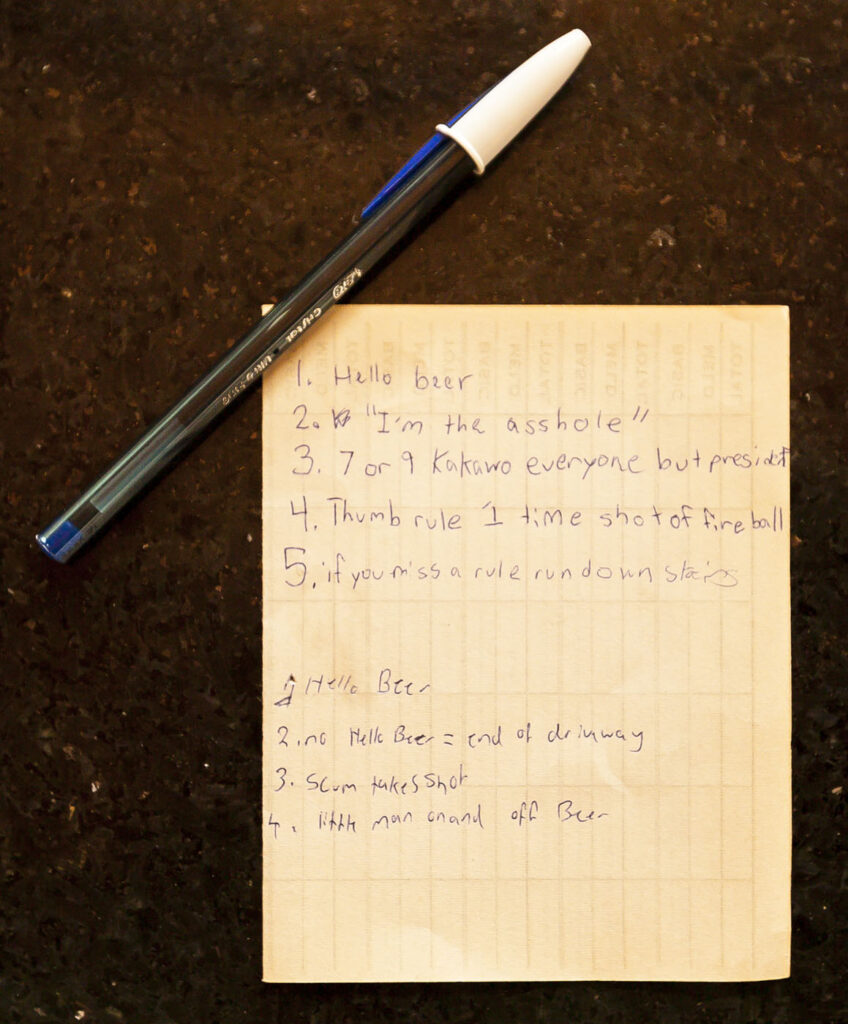 BIC Cristal Ultra
TOTAL MELD BASIC TOTAL MELD BASIC TOTAL
1. Hello beer
2. "I'm the asshole"
3. 7 or 9 Kakawo everyone but president
4. Thumb rule 1 time shot of fireball
5. if you miss a rule run down stairs
1. Hello Beer
2. no Hello Beer = end of drivway
3. Scum takes shot
4. little man on and off Beer